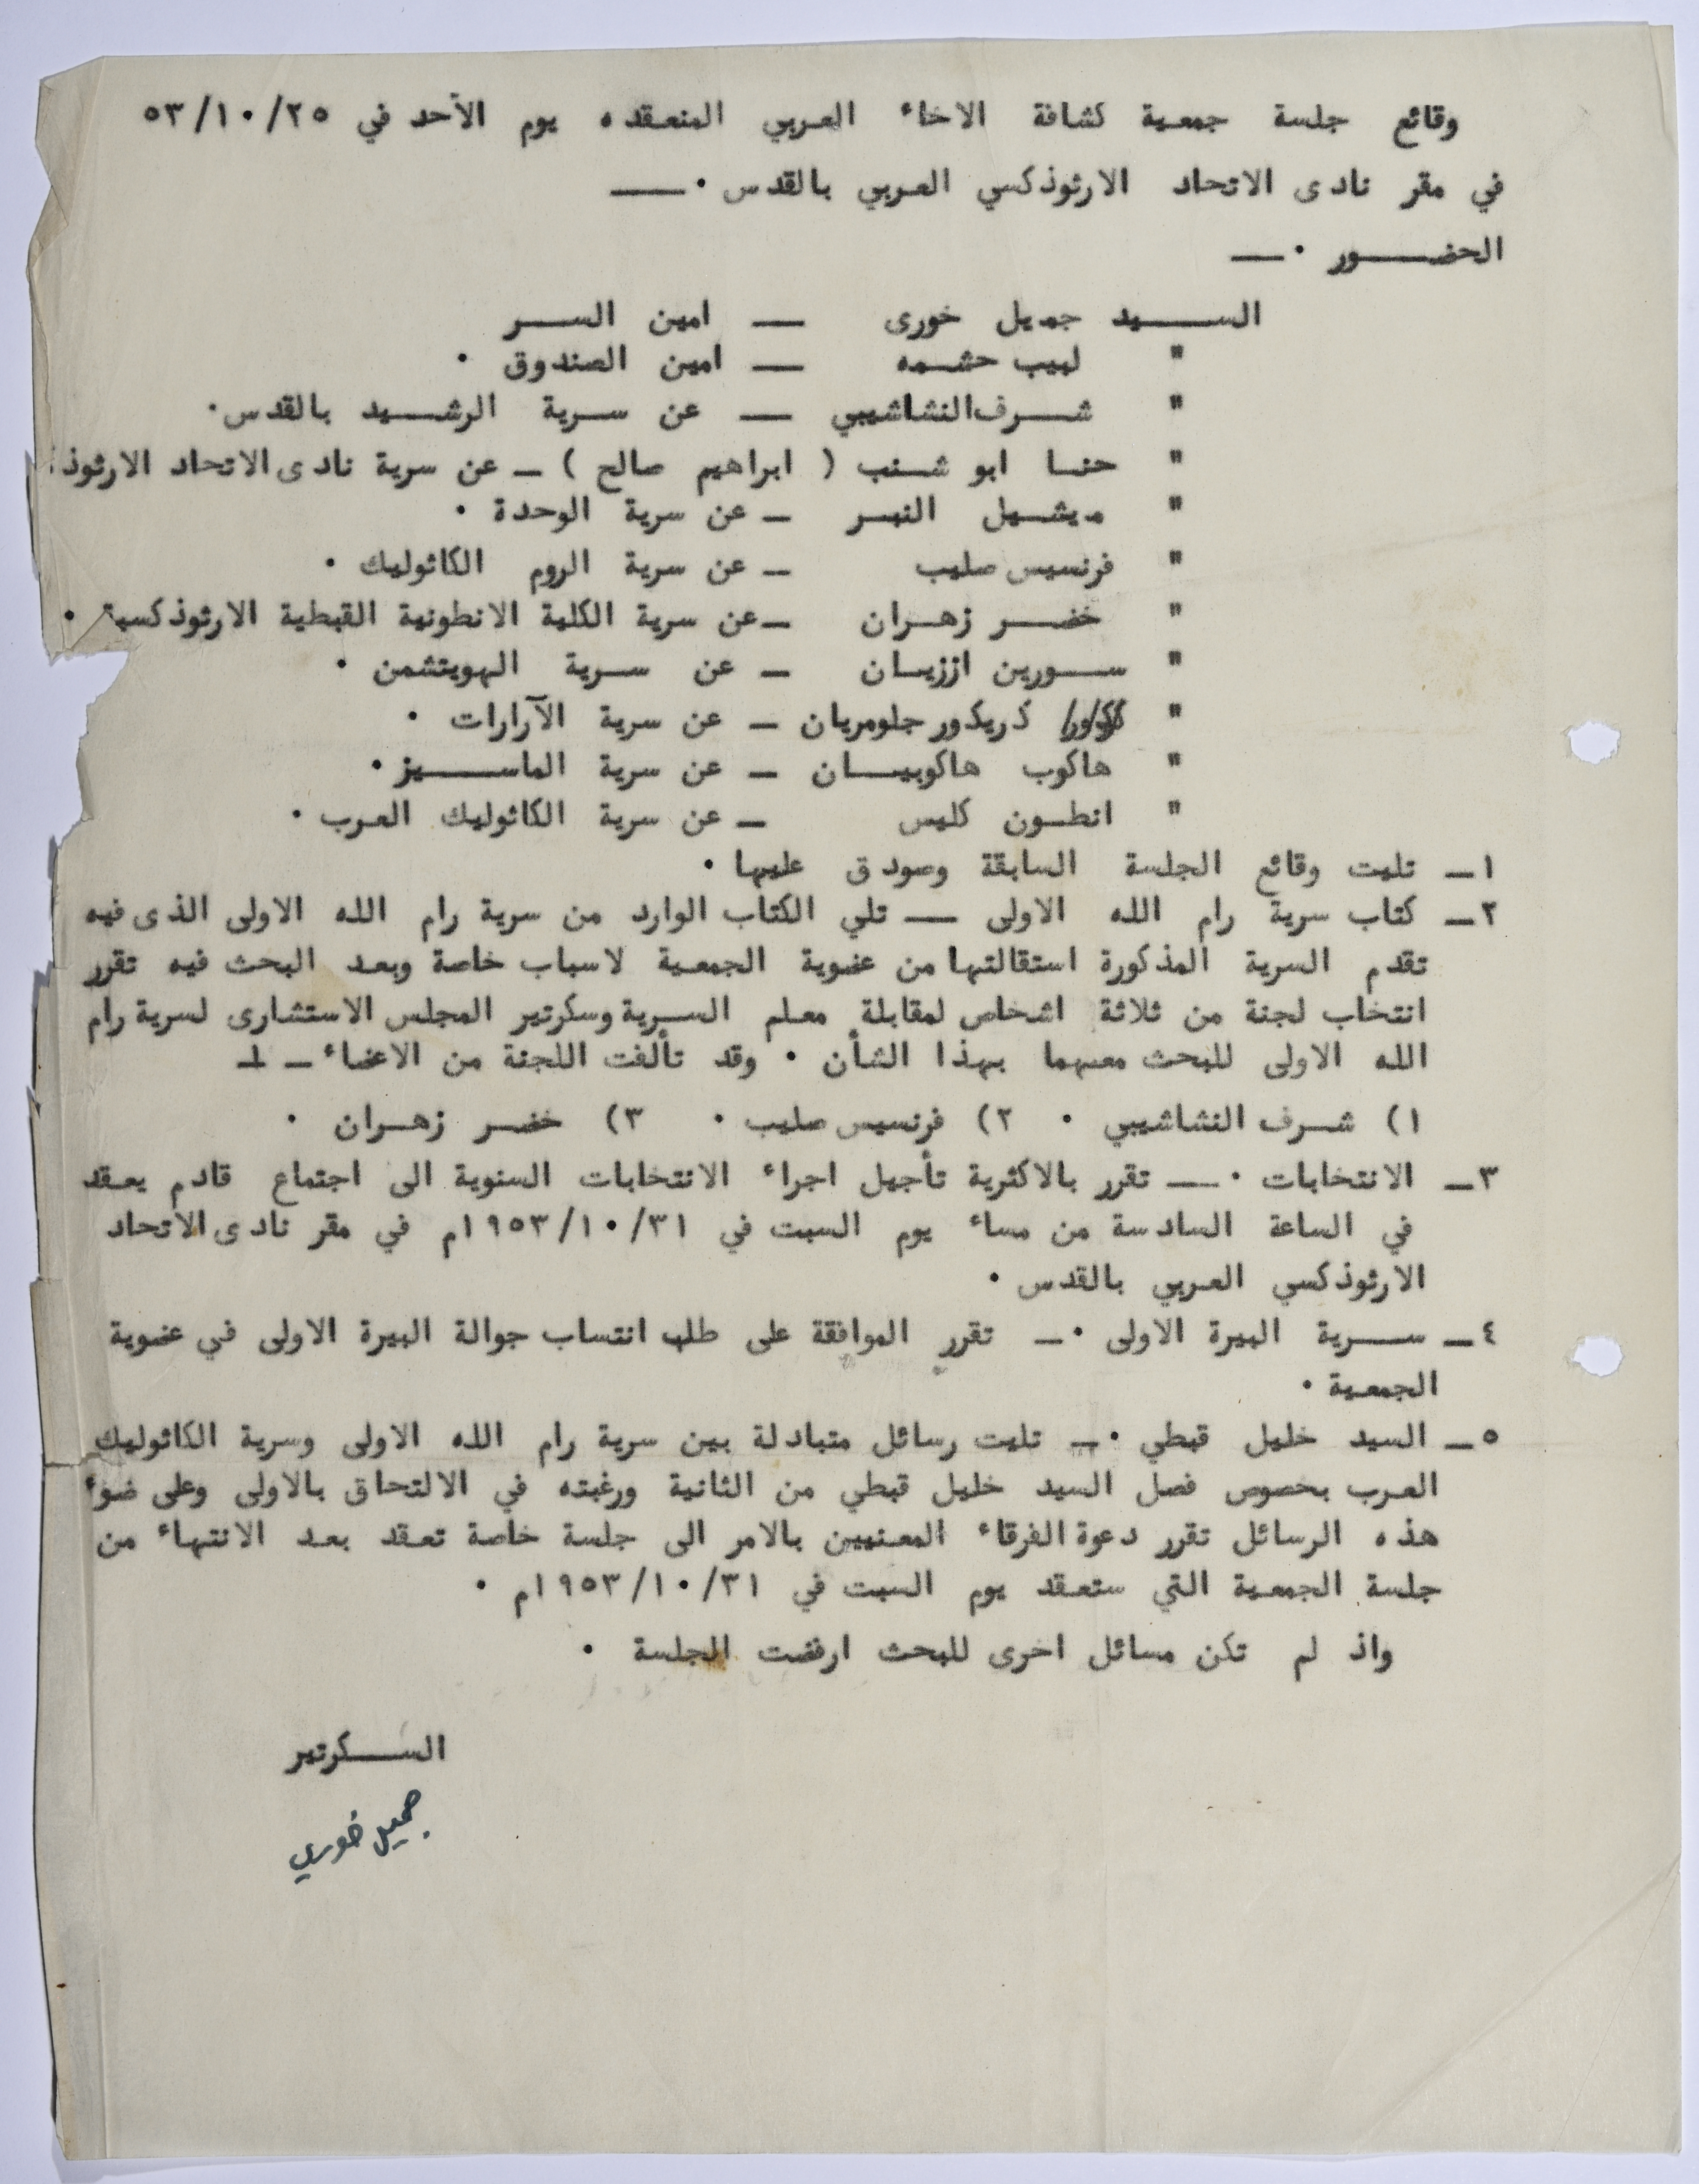 وقائع جلسة جمعية كشافة الاخاء العربي المنعقده يوم الأحد في ٥٣/١٠/٢٥
في مقر نادى الاتحاد الارثوذكسي العربي بالقدس ٠ــــ
الحضـــــور ٠ــــ
الســـــيد جميل خورى ــــ امين الســـر
" لبيب حشـمه ــــ امين الصندوق ٠
" شـــرف النشاشيبي ــــ عن سـرية الرشـيد بالقدس٠
" حنـا ابو شـنب ( ابراهيم صالح ) ــ عن سرية نادى الاتحاد الارثوذ
" ميشـيل النبـر ــ عن سرية الوحدة ٠
" فرنسيس صليب ــ عن سرية الروم الكاثوليك ٠
" خضـــر زهـران ــ عن سرية الكلية الانطونية القبطية الارثوذكسية ٠
" ســورين اززيـان ــ عن سـرية الهويتشمن ٠
" كريكور جلومريان ــ عن سرية الآرارات ٠
" هاكوب هاكوبيـــان ــ عن سرية الماســـيز ٠
" انطـون كليس ــ عن سرية الكاثوليك العرب ٠
١ــ تليت وقائع الجلسة السابقة وصودق عليها ٠
٢ــ كتاب سرية رام الله الاولى ــــ تلي الكتاب الوارد من سرية رام الله الاولى الذى فيه
تقدم السرية المذكورة استقالتها من عضوية الجمعية لاسباب خاصة وبعد البحث فيه تقرر
انتخاب لجنة من ثلاثة اشخاص لمقابلة معلم السـرية وسكرتير المجلس الاستشارى لسرية رام
الله الاولى للبحث معهما بهذا الشأن ٠ وقد تألفت اللجنة من الاعضاء ــ
١) شـرف النشاشيبي ٠ ٢) فرنسيس صليب ٠ ٣) خضـر زهـران ٠
٣ــ الانتخابات ٠ــــ تقرر بالاكثرية تأجيل اجراء الانتخابات السنوية الى اجتماع قادم يعقد
في الساعة السادسة من مساء يوم السبت في ١٩٥٣/١٠/٣١م في مقر نادى الاتحاد
الارثوذكسي العربي بالقدس ٠
٤ــ ســـرية البيرة الاولى ٠ــ تقرر الموافقة على طلب انتساب جوالة البيرة الاولى في عضوية
الجمعية ٠
٥ــ السيد خليل قبطي ٠ــ تليت رسائل متبادلة بين سرية رام الله الاولى وسرية الكاثوليك
العرب بخصوص فصل السيد خليل قبطي من الثانية ورغبته في الالتحاق بالاولى وعلى ضوء
هذه الرسائل تقرر دعوة الفرقاء المعنيين بالامر الى جلسة خاصة تعقد بعد الانتهاء من
جلسة الجمعية التي ستعقد يوم السبت في ١٩٥٣/١٠/٣١م ٠
واذ لم تكن مسائل اخرى للبحث ارفضت الجلسة ٠
الســـكرتير
جميل خوري